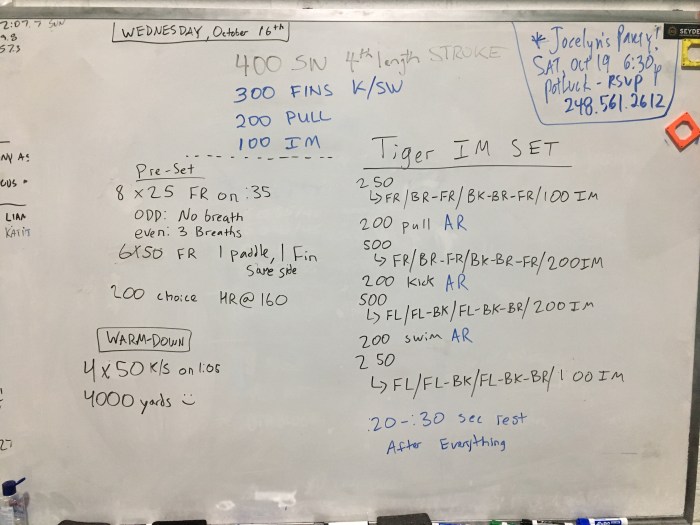 2:07.7 SW
9.8
57.5
WEDNESDAY, October 16th
* Jocelyn's Party!
SAT, Oct 19 6:30p
Potluck - RSVP
248.561.2612
SEYDE
400 SW 4th length STROKE
300 FINS K/SW
200 PULL
100 IM
Pre-Set
8 x 25 FR on :35
ODD: No breath
even: 3 Breaths
6x50 FR 1 paddle, 1 Fin
same side
200 choice HR@160
WARM-DOWN
4 x 50 K/S on 1:05
4000 yards :)
Tiger IM SET
250
↳ FR/BR-FR/BK-BR-FR/100 IM
200 pull AR
500
↳ FR/BR-FR/BK-BR-FR/200IM
200 kick AR
500
↳ FL/FL-BK/FL-BK-BR/200 IM
200 swim AR
250
↳ FL/FL-BK/FL-BK-BR/100 IM
:20-:30 sec rest
After Everything
LIAM